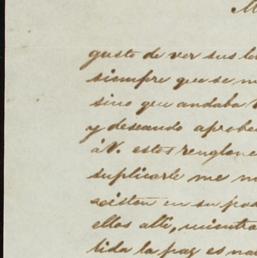 M
gusto de ver sus le
siempre que se m
sino que andaba
y deseando aproba
á V. estos renglone
suplicarle me m
existan en su pod
ellos allí, mientra
tida la paz es na